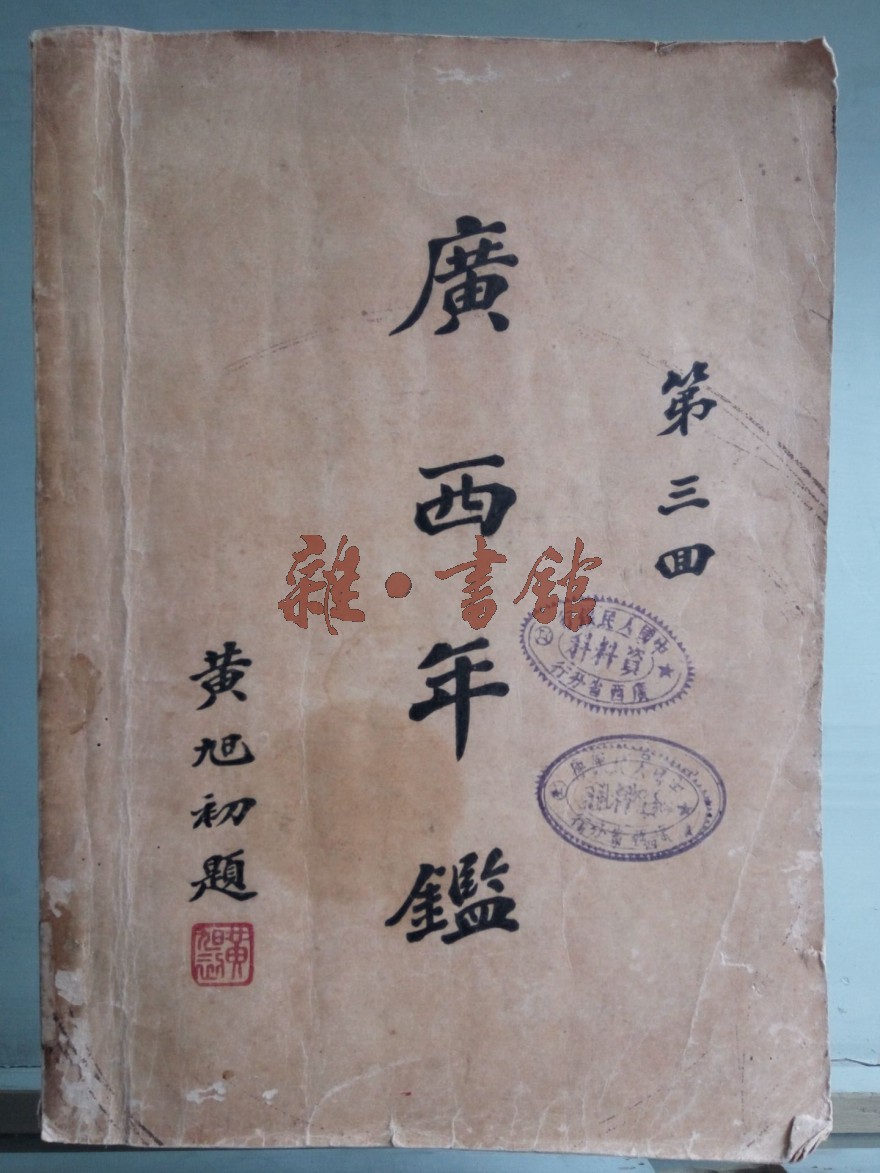 第三回
廣西年鑑
黃旭初題
黃旭初
雜·書館
中國人民銀行
資料科
廣西省分行